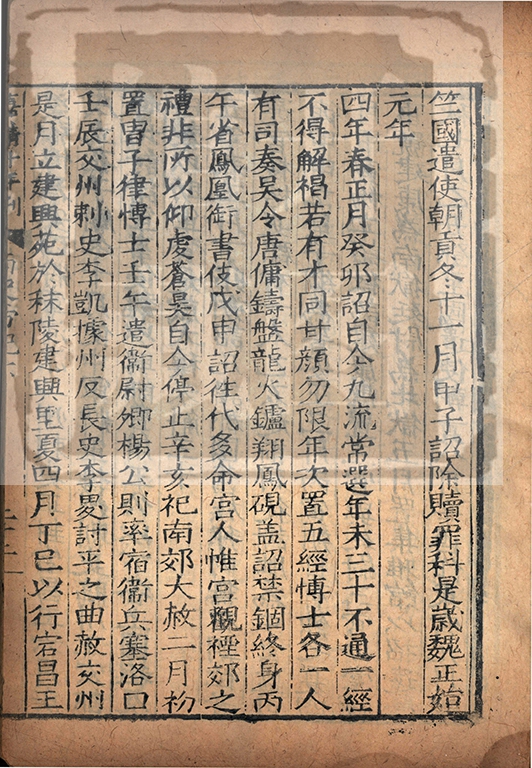 竺國遣使朝貢冬十一月甲子詔除贖罪科是歲魏正始
元年
四年春正月癸卯詔自今九流常選年未三十不通一經
不得解褐若有才同甘顔勿限年次置五經愽士各一人
有司奏吴令唐傭鑄盤龍火鑪翔鳳硯盖詔禁錮終身丙
午省鳳凰銜書伎戊申詔徃代多命宫人惟宫觀禋郊之
禮非所以仰虔蒼昊自今停止辛亥祀南郊大赦二月初
置冑子律愽士壬午遣衞尉卿楊公則率宿衞兵塞洛口
壬辰交州剌史李凱㩀州反長史李畟討平之曲赦交州
是月立建興苑於秣陵建興里夏四月丁巳以行宕昌王